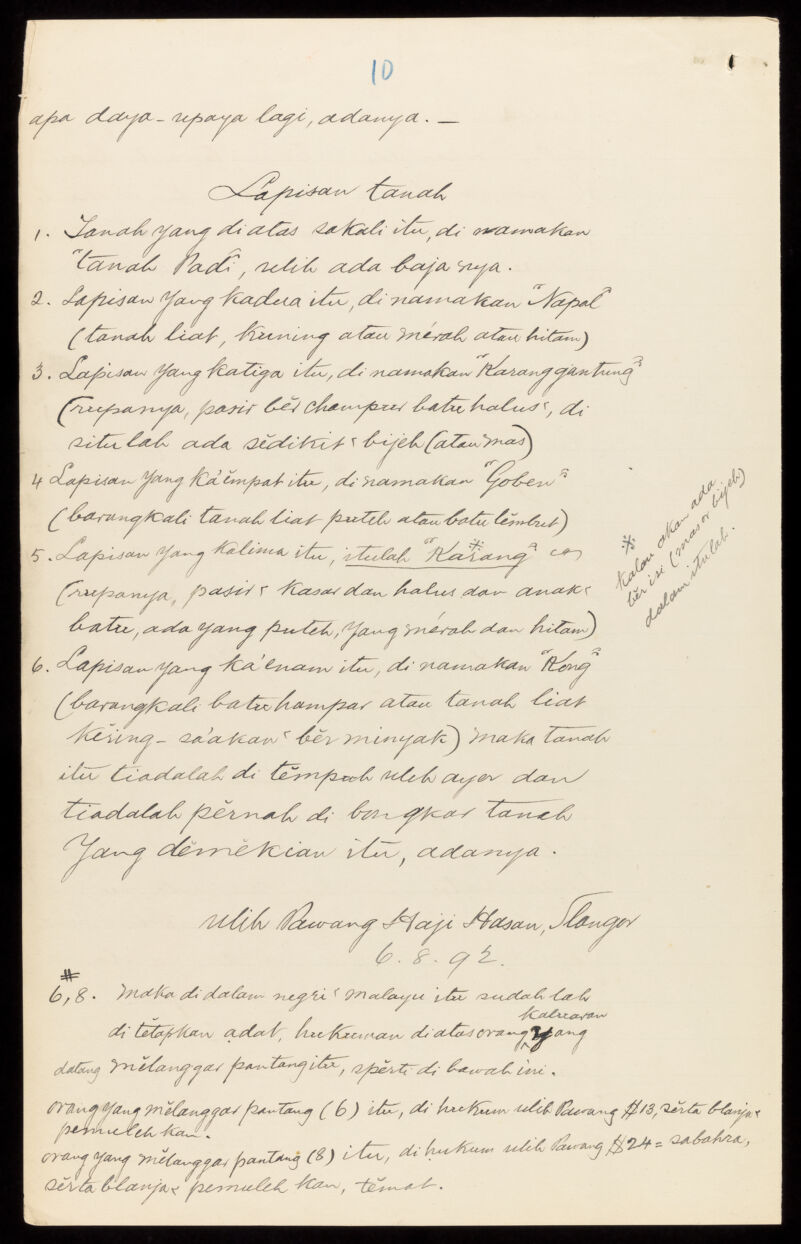 10
apa daya-upaya lagi, adanya. —
Lapisan tanah
1. Tanah yang diatas sakali itu, di namakan
"tanah Padi", ulih ada baja nya.
2. Lapisan yang kadua itu, di namakan "Napal"
(tanah liat, kuning atau mérah atau hitam)
3. Lapisan yang katiga itu, di namakan "Karang gantung"
(rupanya, pasir bĕr champur batu halus², di
situ lah ada sĕdikit² bijeh (atau mas)
4 Lapisan yang ka'ĕmpat itu, di namakan "Goben"
(barangkali tanah liat puteh atau batu lĕmbut)
5. Lapisan yang kalima itu, itulah "Karang"
※
(rupanya, pasir² kasar dan halus dan anak²
batu, ada yang puteh, yang mérah dan hitam)
※ Kalau akan ada
bĕr isi (mas or bijeh)
dalam itu lah.
6. Lapisan yang ka'enam itu, di namakan "Kong"
(barangkali batu hampar atau tanah liat
kĕring - sa'akan² bĕr minyak) maka tanah
itu tiadalah di tĕmpoh ulih ayer dan
tiadalah pĕrnah di bongkar tanah
Yang dĕmĕkian itu, adanya.
ulih Pawang Haji Hasan, Slangor
6.8.92.
#
6,8. maka di dalam negri² malayu itu sudah lah
di tĕtapkan adat, hukuman diatas orang kaluaran yang
datang mĕlanggar pantang itu, spĕrti di bawah ini.
orang yang mĕlanggar pantang (6) itu, di hukum ulih Pawang $13, sĕrta blanja²
pemuleh kan.
orang yang mĕlanggar pantang (8) itu, di hukum ulih Pawang $24 = sabahra,
sĕrta blanja² pemuleh kan, tĕmat.